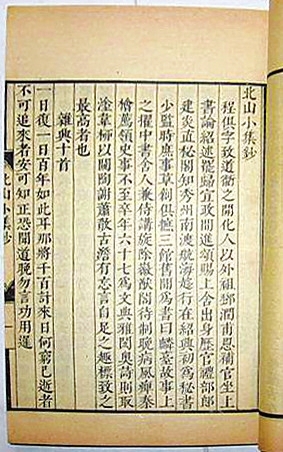 北山小集鈔
程俱字致道衢之開化人以外祖鄧潤甫恩補官坐上
書論紹述罷歸宣政間進頌賜上舍出身歷官禮部郎
建炎直秘閣知秀州南渡航海趨行在紹興初為秘書
少監時庶事草創俱摭三館舊聞為書曰麟臺故事上
之擢中書舍人兼侍講旋除徽猷閣待制晚病風痺秦
檜薦領史事不至卒年六十七為文典雅閎奧詩則取
塗韋柳以闚陶謝蕭散古澹有忘言自足之趣標致之
最高者也
雜興十首
一日復一日百年如此耳那將千百計來日何窮已逝者
不可追來者安可知正恐聞道晚勿言功用遲
北山小集鈔